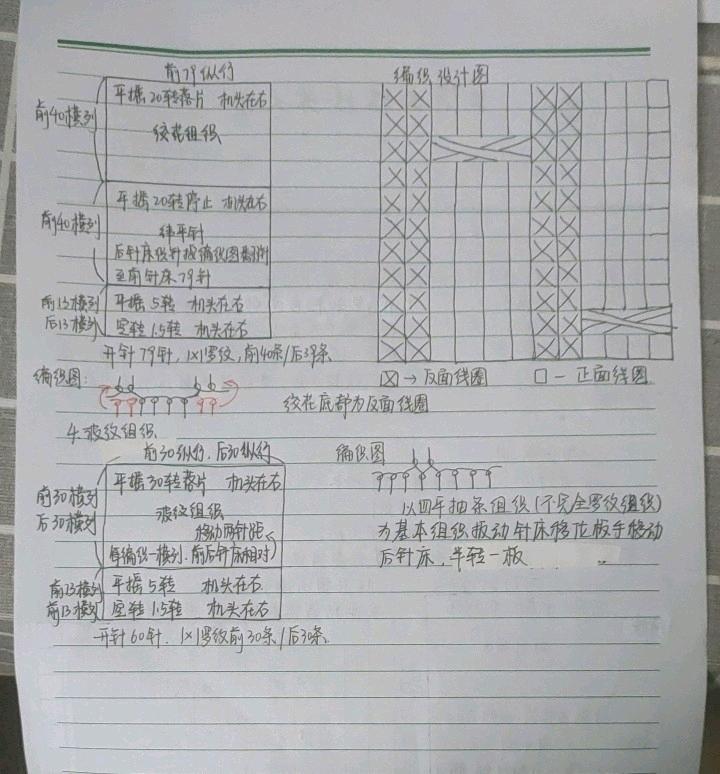 前79纵行
编织设计图
前40横列
平摇20转落片 机头在右
绞花组织
前40横列
平摇20转停止 机头在右
纬平针
后针床织针按编织图翻针
至前针床79针
前12横列
后13横列
平摇5转 机头在右
空转1.5转 机头在右
开针79针，1×1罗纹，前40条/后39条
编织图：
☒→反面线圈 □－正面线圈
绞花底都为反面线圈
4.波纹组织
前30纵行，后30纵行
编织图
前30横列
后30横列
平摇30转落片 机头在右
波纹组织
移动两针距
每编织一横列，前后针床相对
前13横列
前13横列
平摇5转 机头在右
空转1.5转 机头在右
开针60针，1×1罗纹前30条/后30条
以四平抽条组织(不完全罗纹组织)
为基本组织扳动针床移位扳手移动
后针床，半转一扳